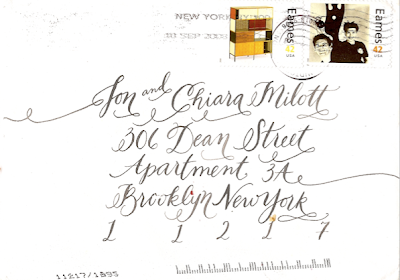 NEW YORK
18 SEP
Eames
42
USA
Eames
42
USA
Jon and Chiara Milott
306 Dean Street
Apartment 3A
Brooklyn New York
1 1 2 1 7
11217/1895